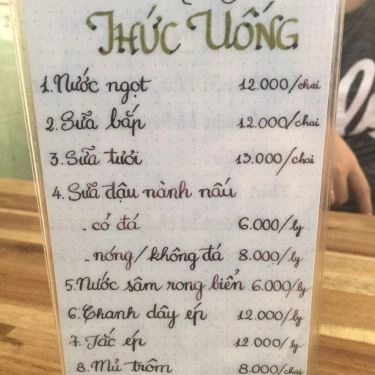 THỨC UỐNG
1. Nước ngọt 12.000/chai
2. Sữa bắp 12.000/chai
3. Sữa tươi 13.000/chai
4. Sữa đậu nành nấu
- có đá 6.000/ly
- nóng/không đá 8.000/ly
5. Nước sâm rong biển 6.000/ly
6. Chanh dây ép 12.000/ly
7. Tắc ép 12.000/ly
8. Mủ trôm 8.000/chai